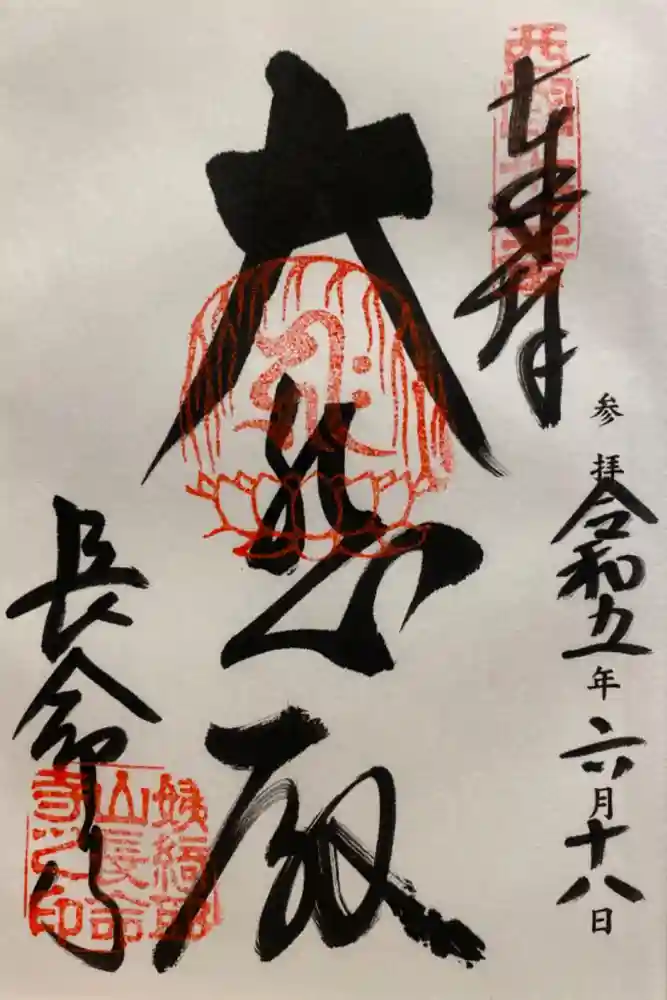 奉拝
参拝令和五年六月十八日
大悲殿
長命寺
姨綺耶
山長命
寺之印